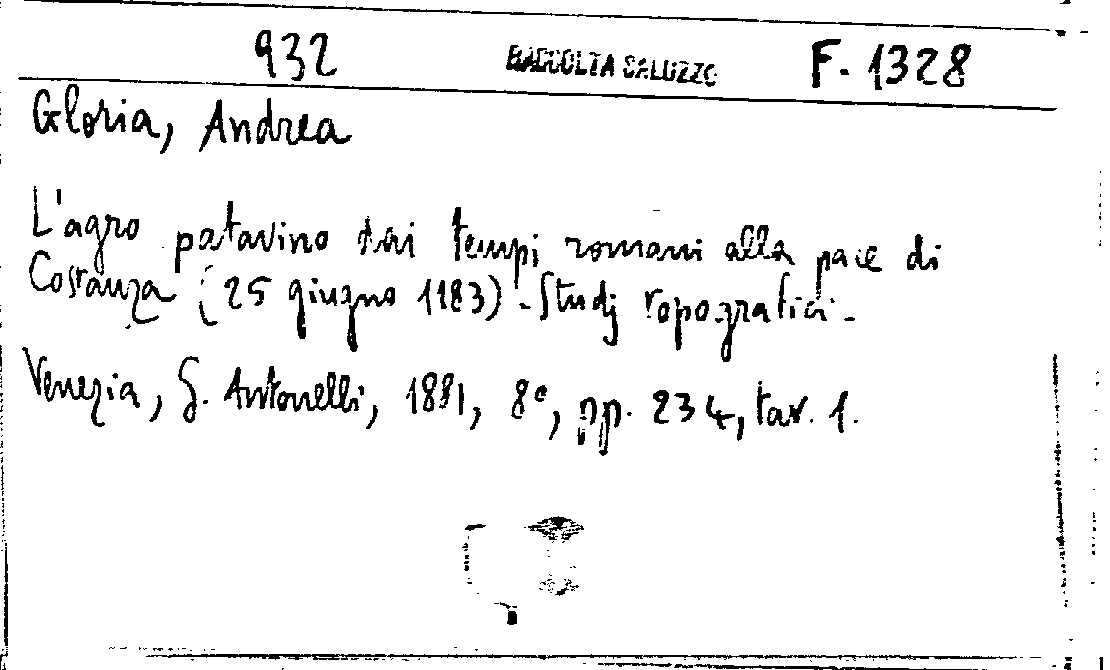 932 RACCOLTA SALUZZO F. 1328
Gloria, Andrea
L'agro patavino dai tempi romani alla pace di
Costanza (25 giugno 1183) - Studj topografici -
Venezia, G. Antonelli, 1881, 8°, pp. 234, tav. 1.